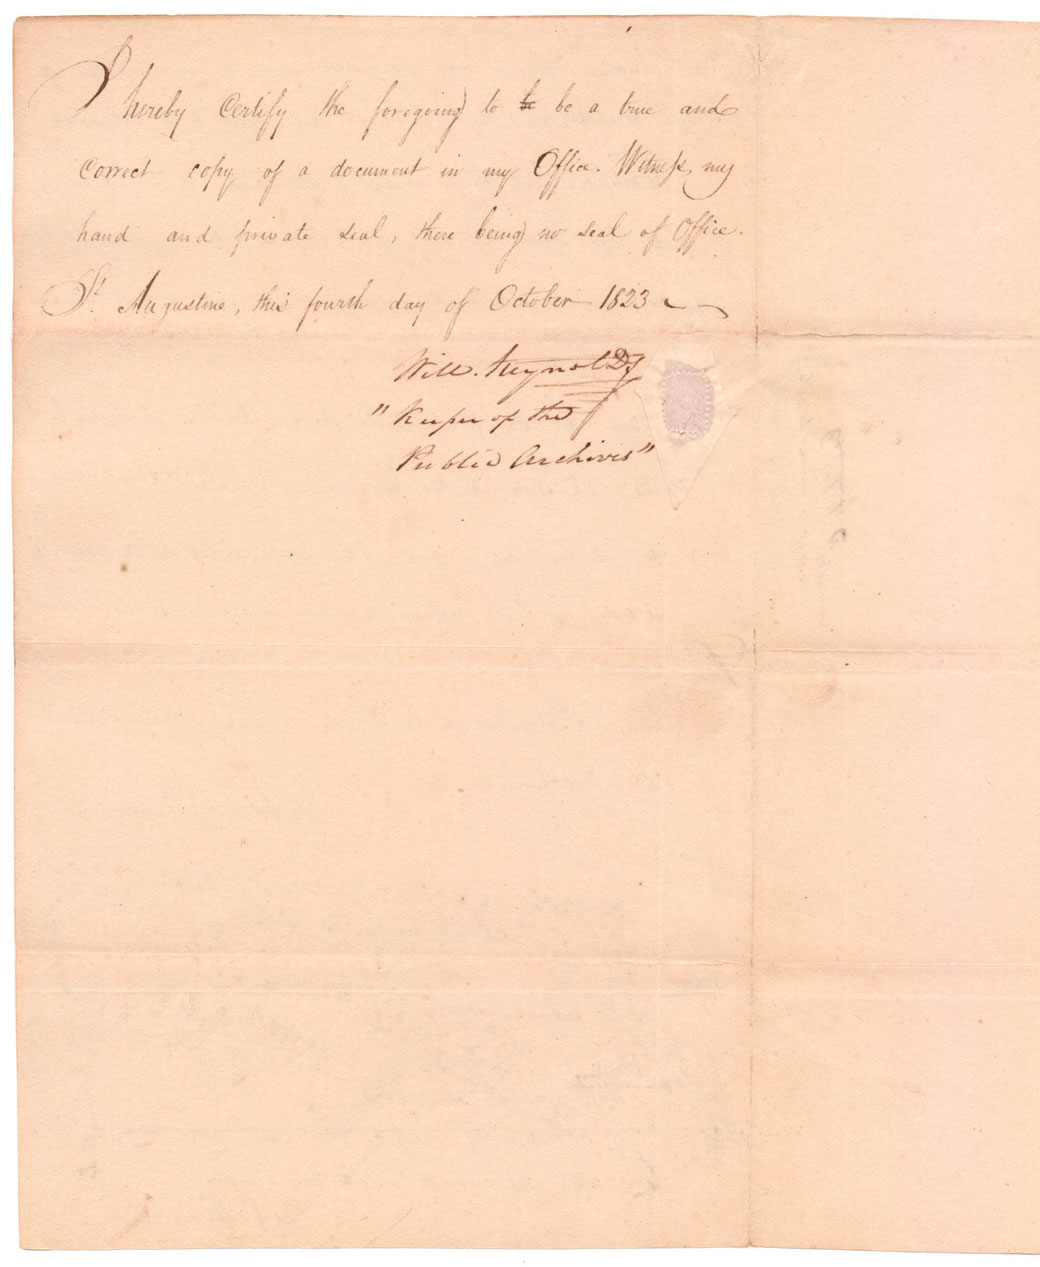 I hereby Certify the foregoing to be be a true and
Correct copy of a document in my Office. Witness my
hand and private seal, there being no seal of Office.
St. Augustine, this fourth day of October 1823
Will. Reynolds
"Keeper of the
Public Archives"